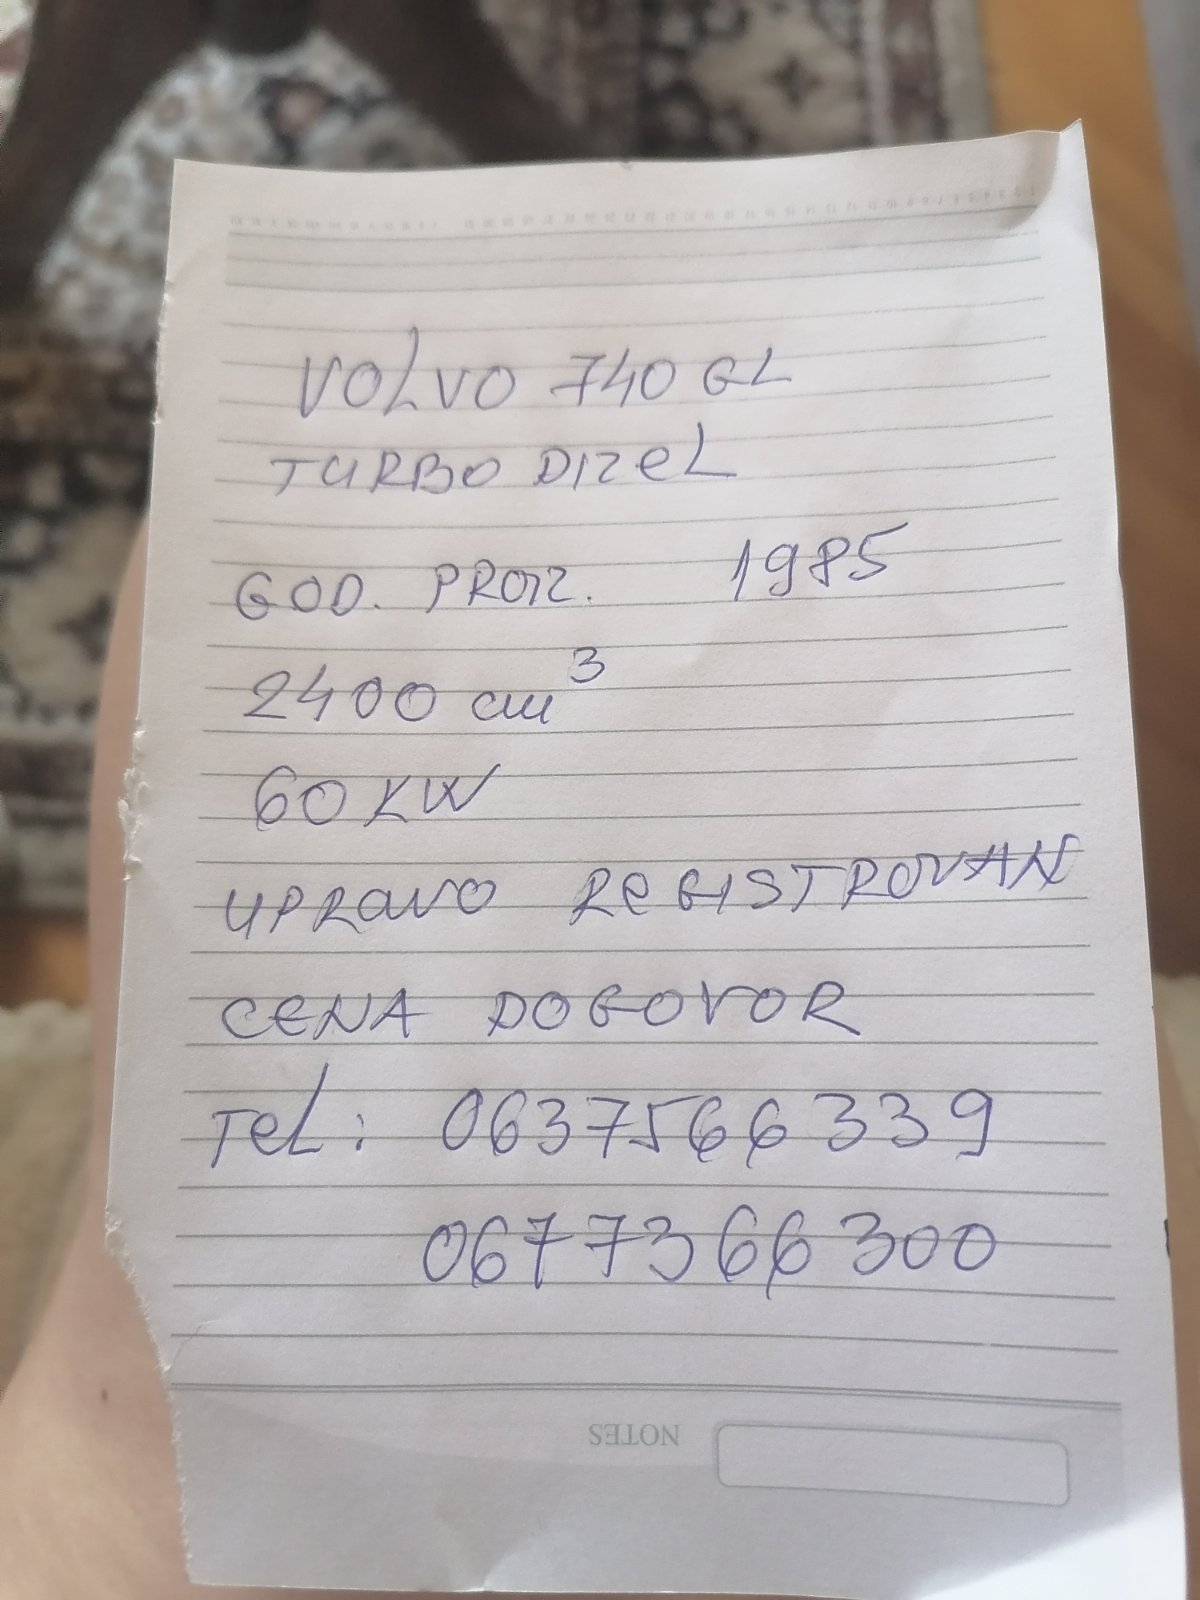 VOLVO 740 GL
TURBO DIZEL
GOD. PROIZ. 1985
2400 cm³
60 KW
UPRAVO REGISTROVAN
CENA DOGOVOR
TEL: 0637566339
0677366300
NOTES